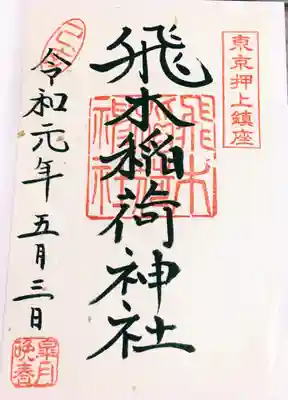 東京押上鎮座
飛木稲荷神社
飛木稲荷神社
令和元年五月三日
皐月
晩春